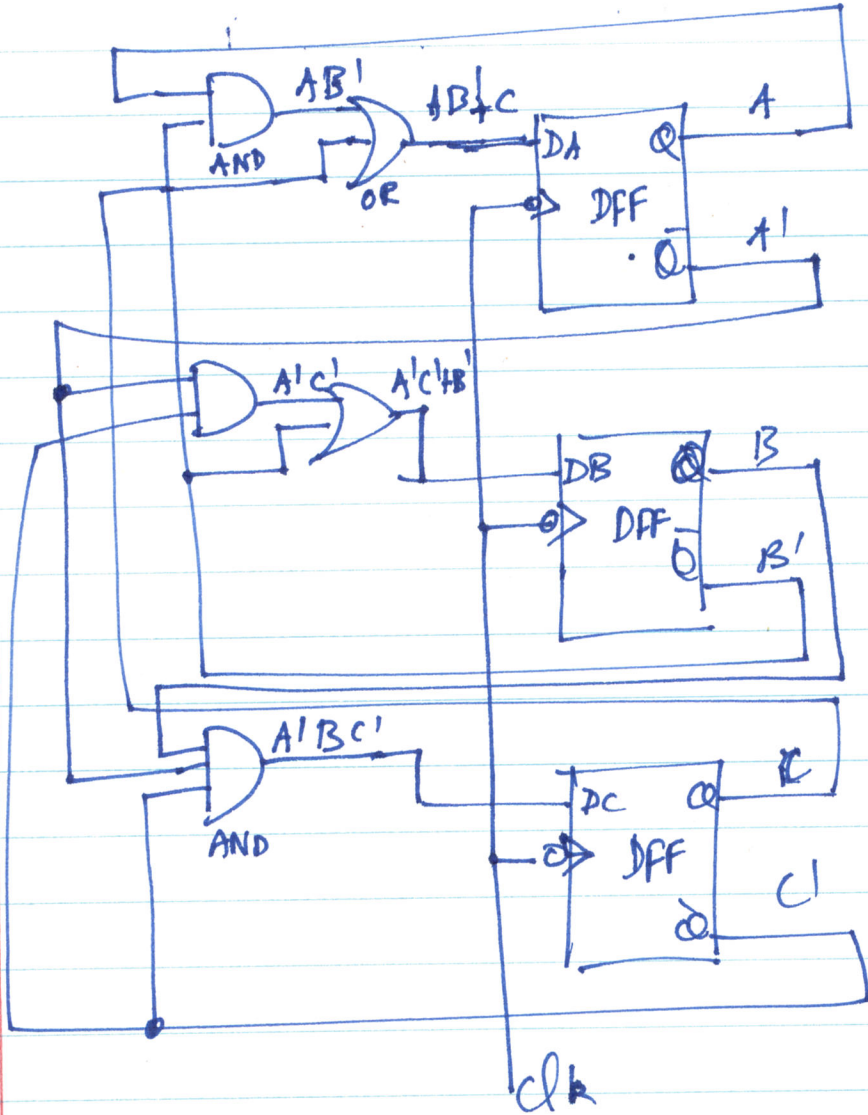 AB' AB'+C A
AND OR DA Q
DFF
Q̅ A'
A'C' A'C'+B'
DB Q B
DFF
Q̅ B'
A'BC'
AND
DC Q C
DFF
Q̅ C'
Clk